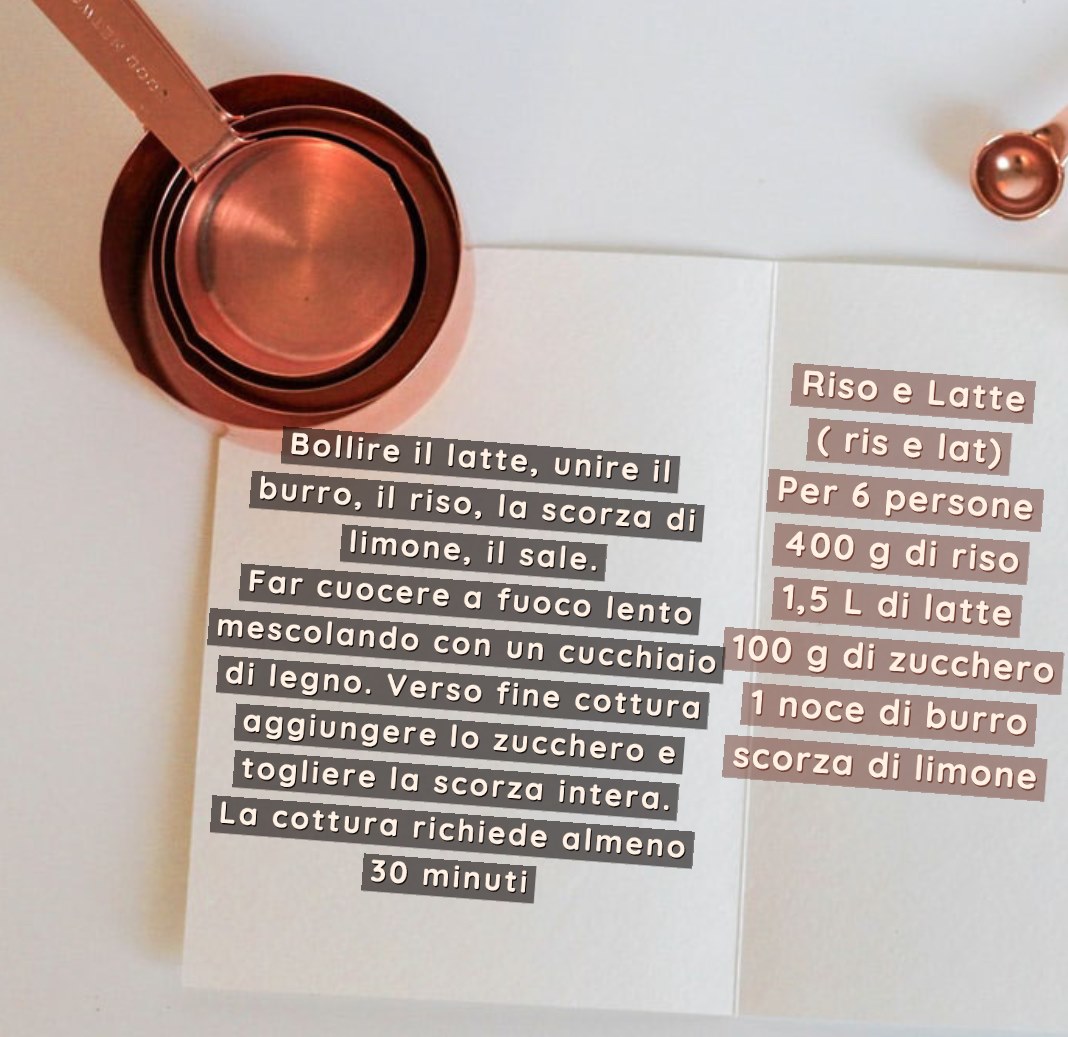 Bollire il latte, unire il
burro, il riso, la scorza di
limone, il sale.
Far cuocere a fuoco lento
mescolando con un cucchiaio
di legno. Verso fine cottura
aggiungere lo zucchero e
togliere la scorza intera.
La cottura richiede almeno
30 minuti
Riso e Latte
( ris e lat)
Per 6 persone
400 g di riso
1,5 L di latte
100 g di zucchero
1 noce di burro
scorza di limone